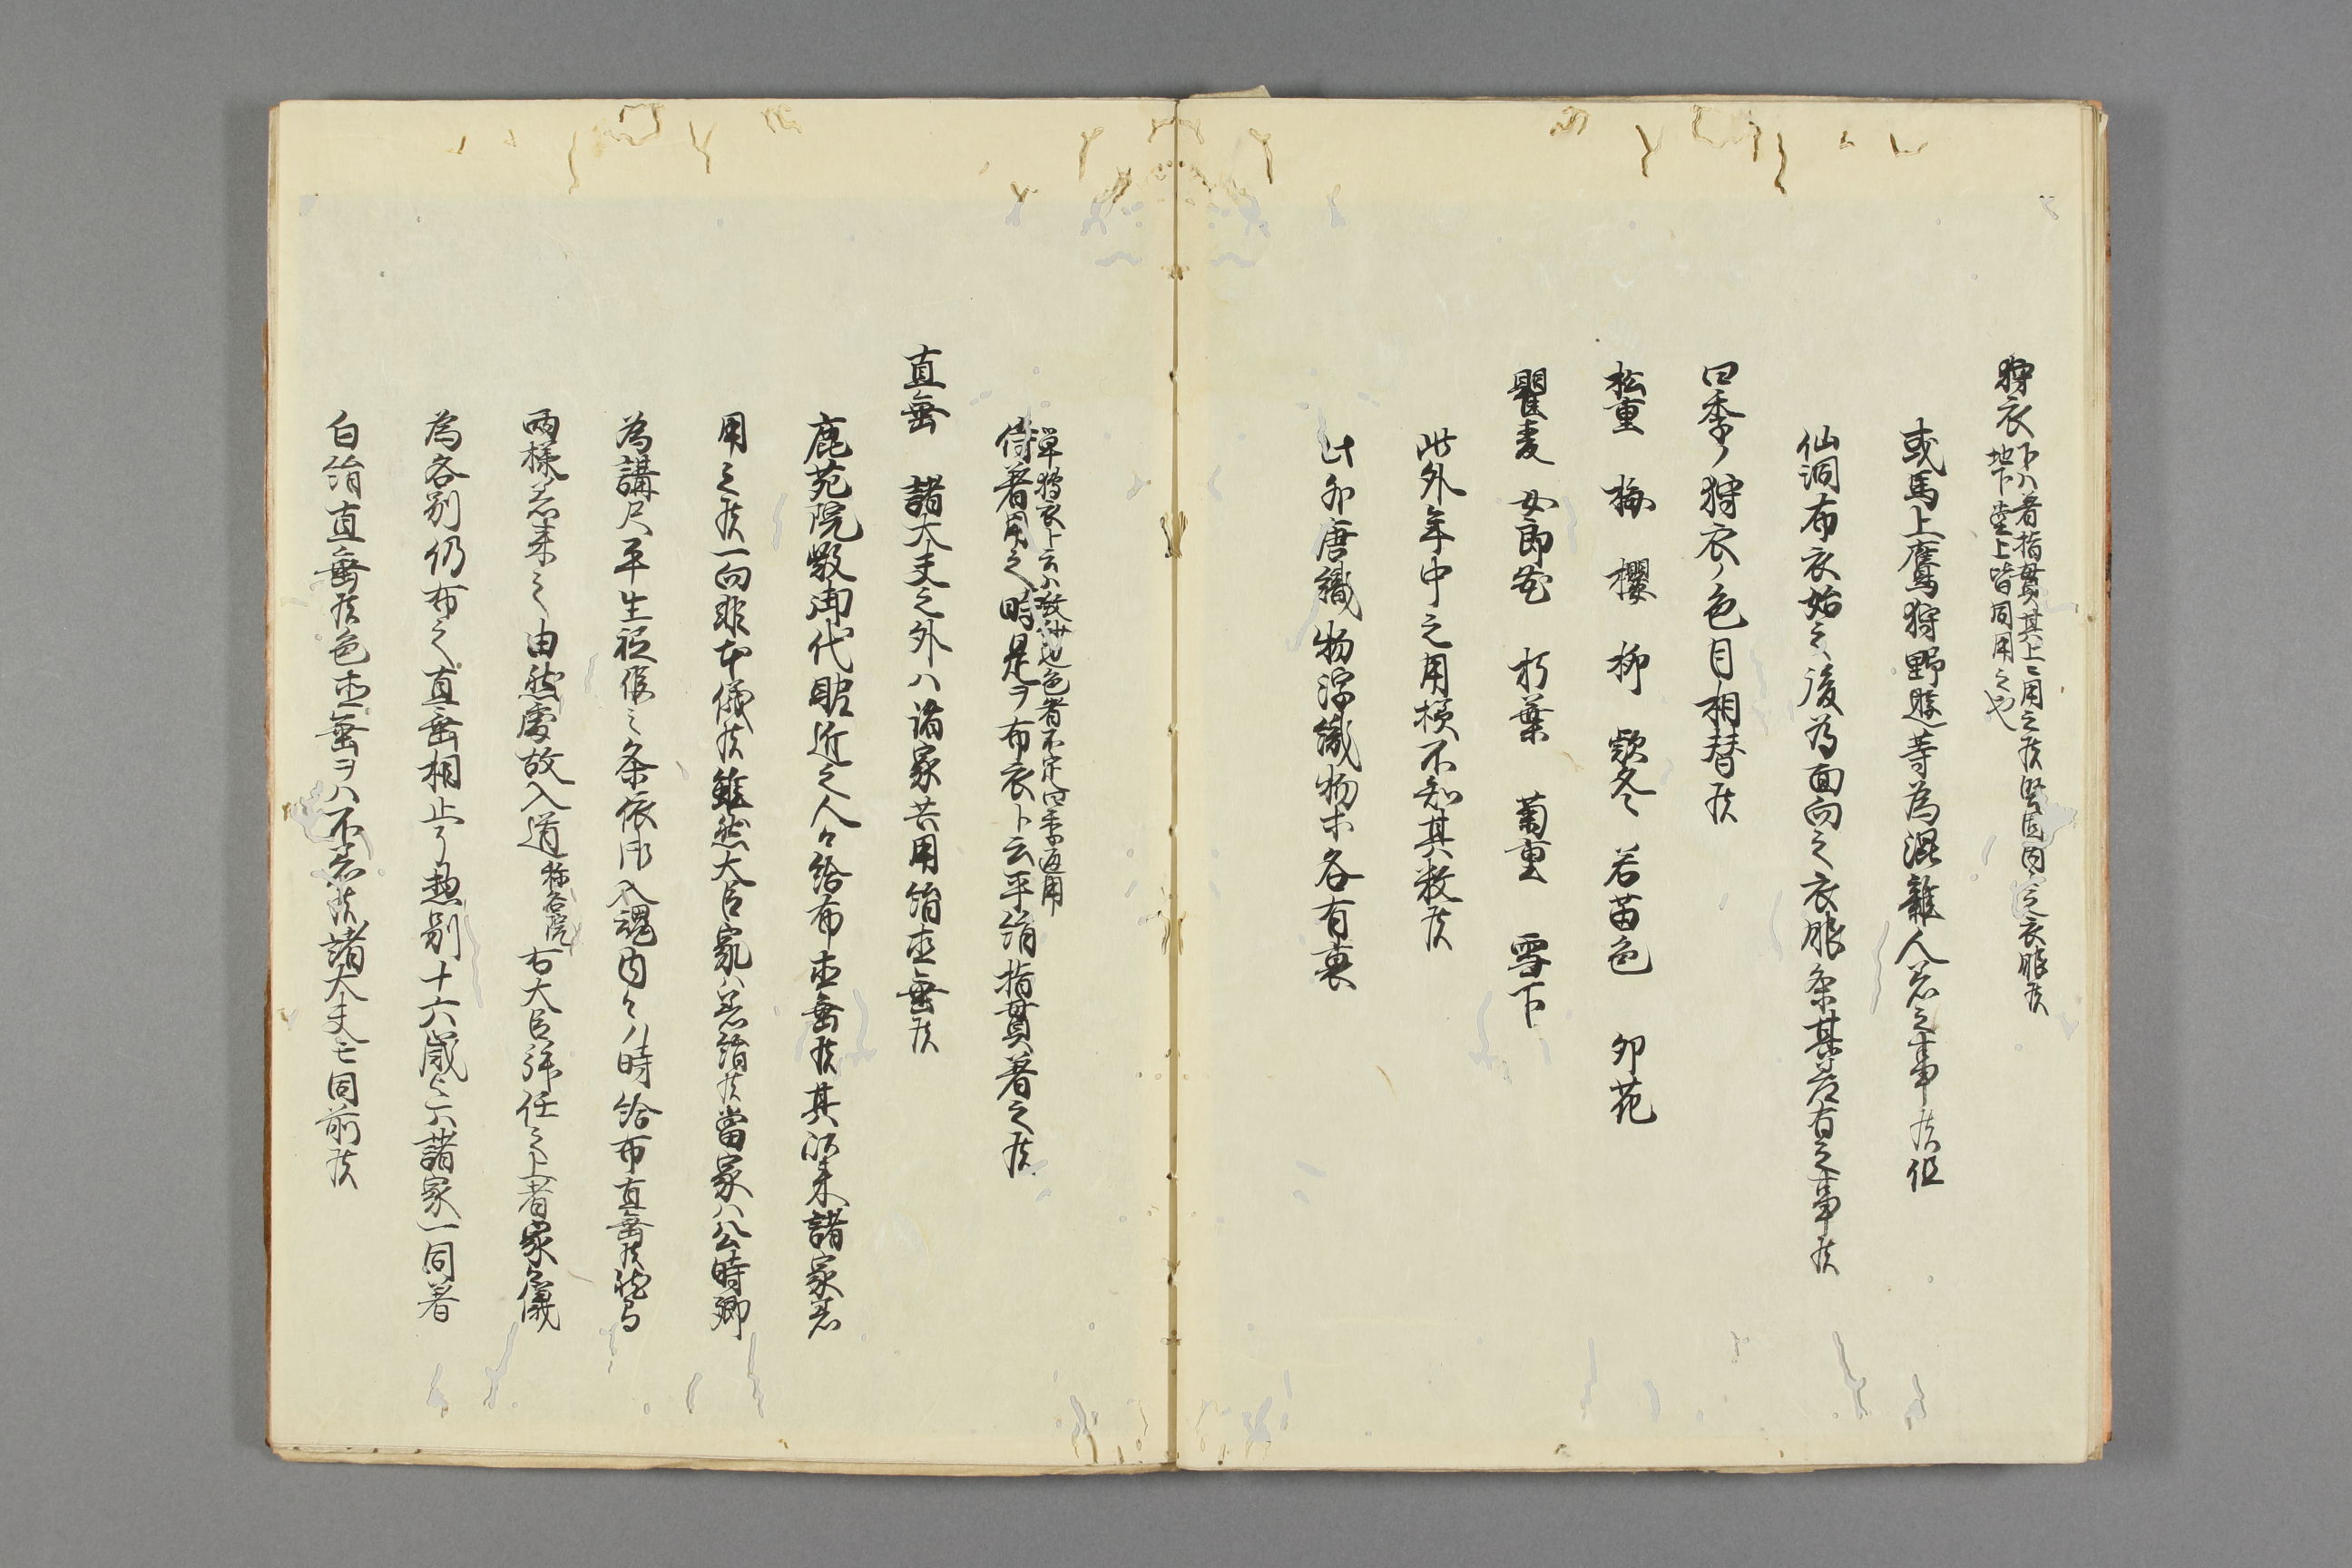 狩衣 下ハ著指貫其上ニ用之候
地下堂上皆同用之也
或馬上鷹狩野遊等為混雑人着之事候但
仙洞布衣始之後為面向之衣服条其差有之事候
四季ノ狩衣ノ色目相替候
松重 梅 櫻 柳 欵冬 若苗色 卯花
瞿麦 女郎花 朽葉 菊重 雪下
此外年中之用様不知其数候
此外唐織物浮織物木各有裏
単狩衣ト云ハ
色者不定四季通用
侍著用之時是ヲ布衣ト云平絹指貫著之候
直垂 諸大夫之外ハ諸家共用絹直垂候
鹿苑院殿御代昵近之人々給布直垂候其以来諸家着
用之候一向非本儀候雖然大臣家ハ着絹候當家ハ公時卿
為講尺平生祗候之条依御入魂内々ハ時給布直垂候
両様着来之由然處故入道称名院右大臣拝任之上者家儀
為各別仍布之直垂相止了惣別十六歳ヨリ諸家一同著
白絹直垂候色直垂ヲハ不着候諸大夫モ同前候